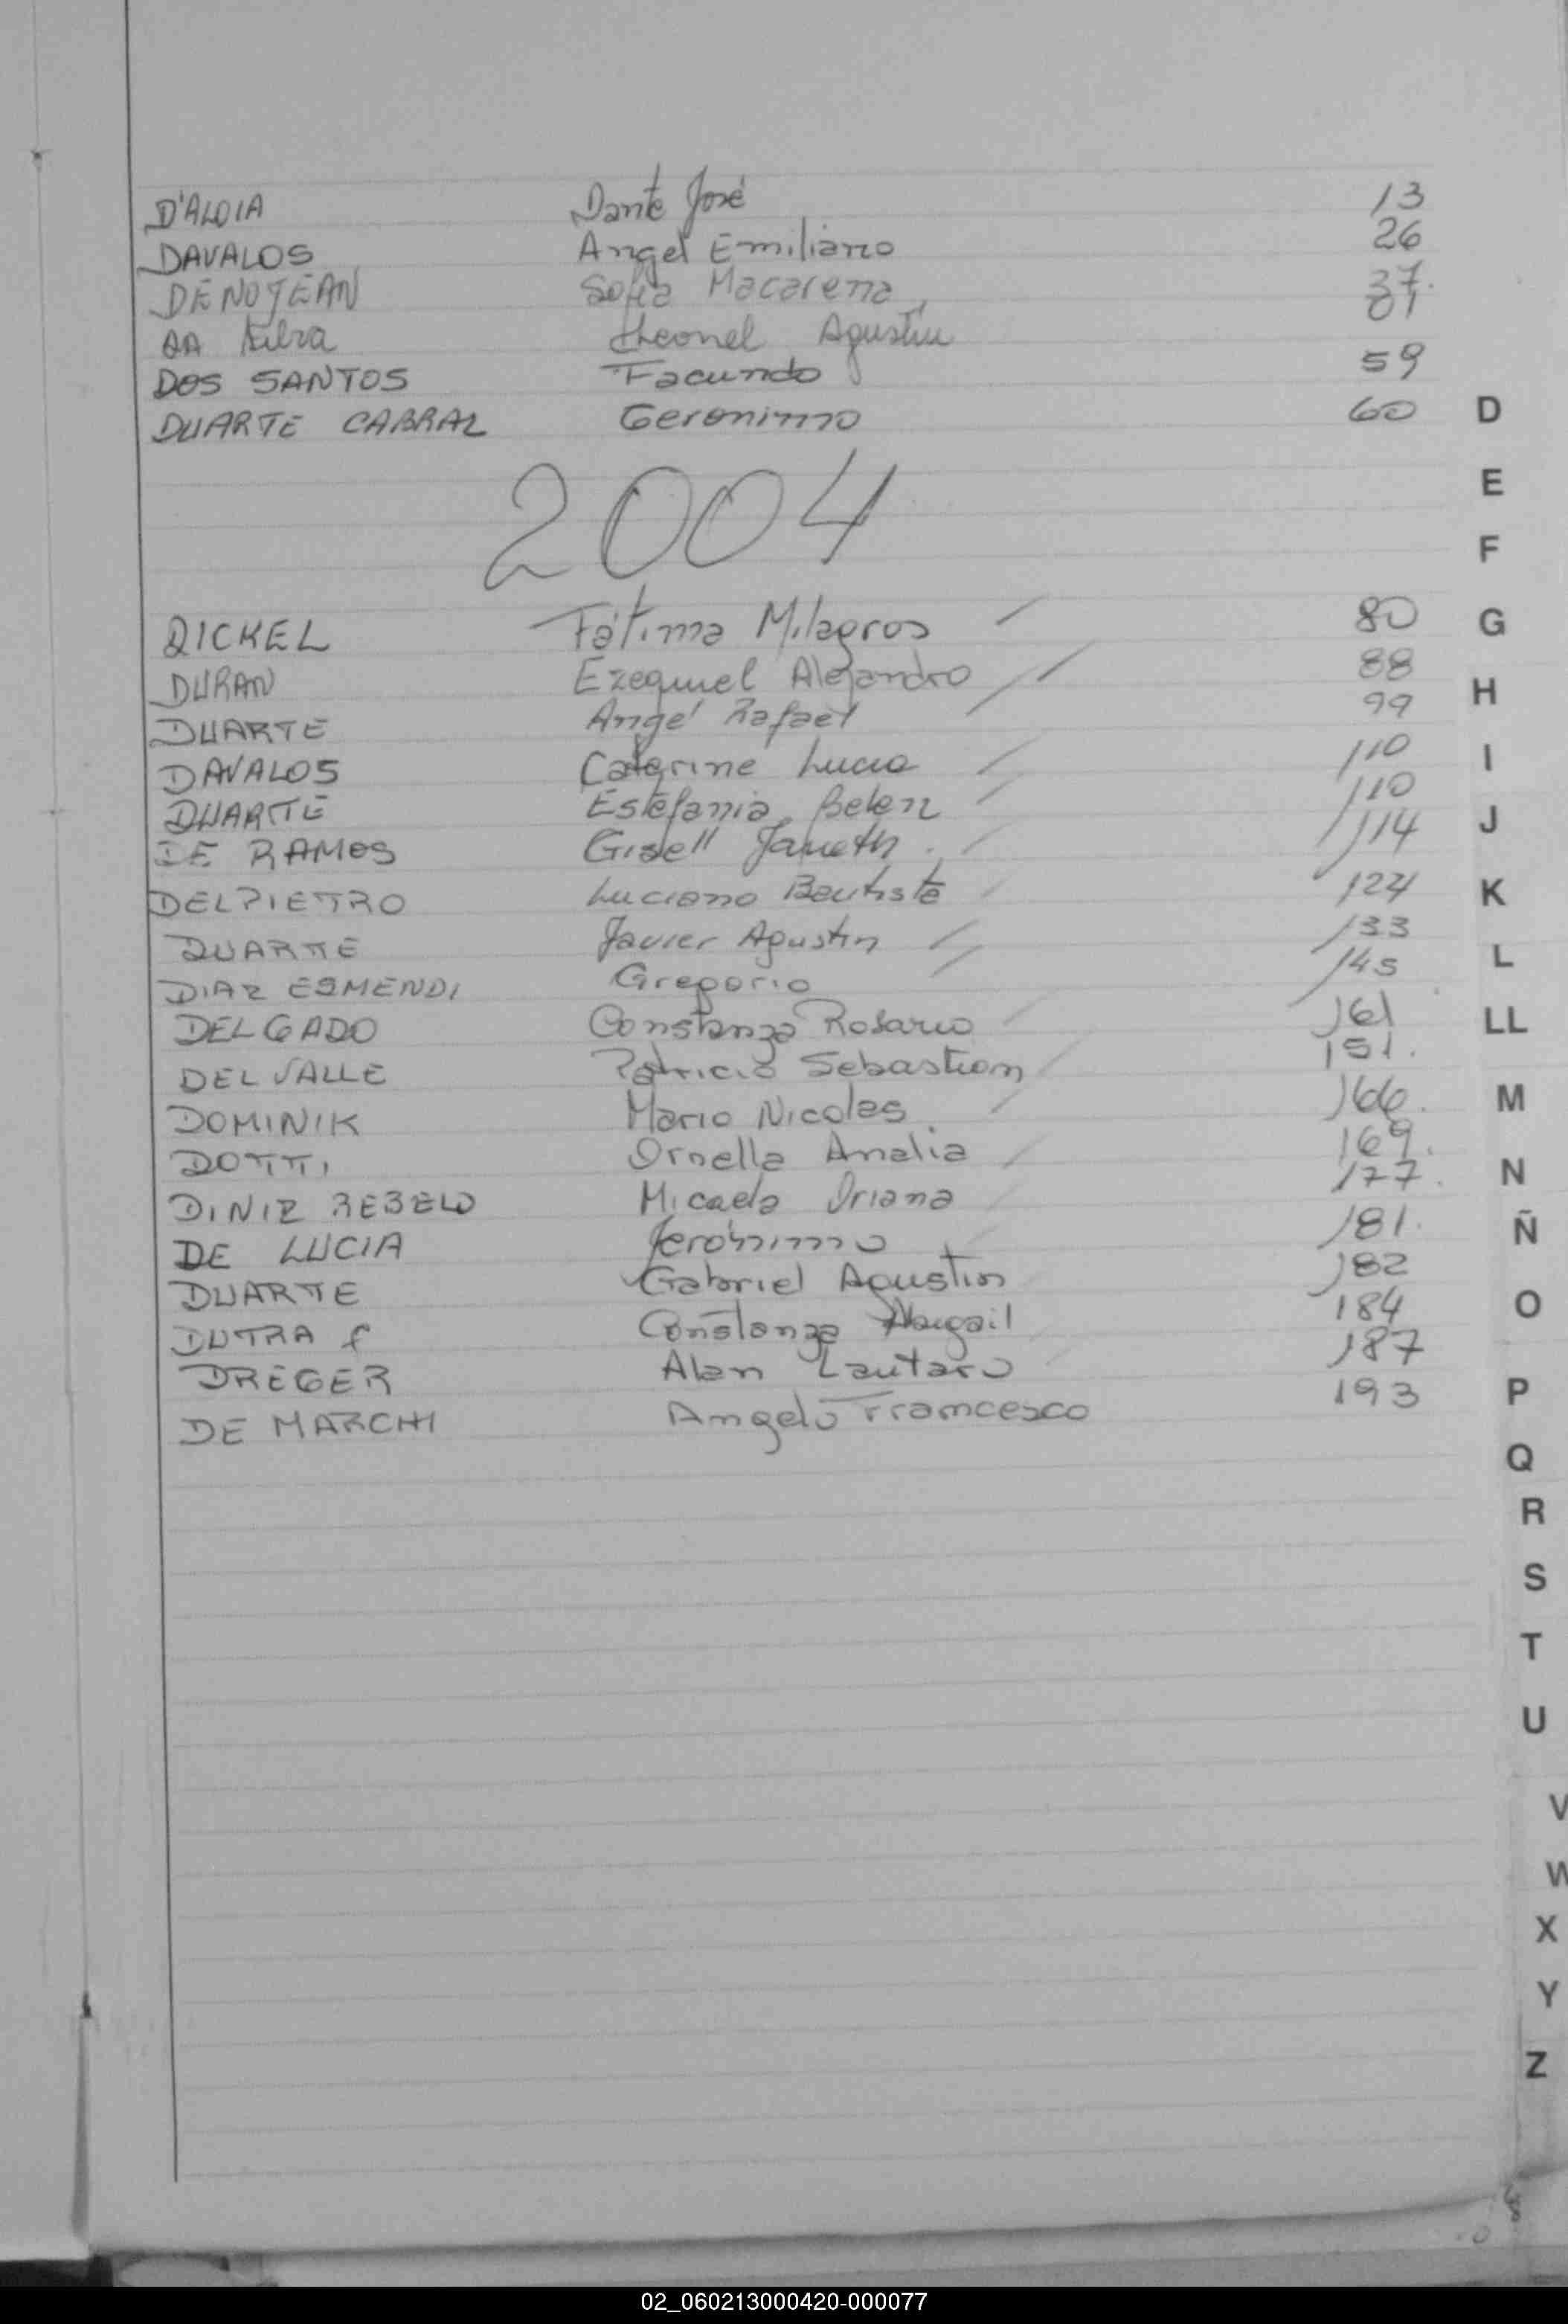 D'ALOIA Dante José 13
DAVALOS Angel Emiliano 26
DENOJEAN Sofia Macarena 37.
DA Silva Leonel Agustín 01
DOS SANTOS Facundo 59
DUARTE CABRAL Geronimo 60
2004
DICKEL Fátima Milagros 80
DURAN Ezequiel Alejandro 88
DUARTE Angel Rafael 99
DAVALOS Caterine Lucia 110
DUARTE Estefania Belen 110
DE RAMOS Gisell Janeth 114
DELPIETRO Luciano Bautista 124
DUARTE Javier Agustin 133
DIAZ ESMENDI Gregorio 145
DELGADO Constanza Rosario 161
DEL VALLE Patricio Sebastian 151.
DOMINIK Mario Nicolas 166.
DOTTI Ornella Analia 169.
DINIZ REBELO Micaela Oriana 177.
DE LUCIA Jerónimo 181.
DUARTE Gabriel Agustin 182
DUTRA f Constanza Abigail 184
DREGER Alan Lautaro 187
DE MARCHI Angelo Francesco 193
D
E
F
G
H
I
J
K
L
LL
M
N
Ñ
O
P
Q
R
S
T
U
V
W
X
Y
Z
02_060213000420-000077